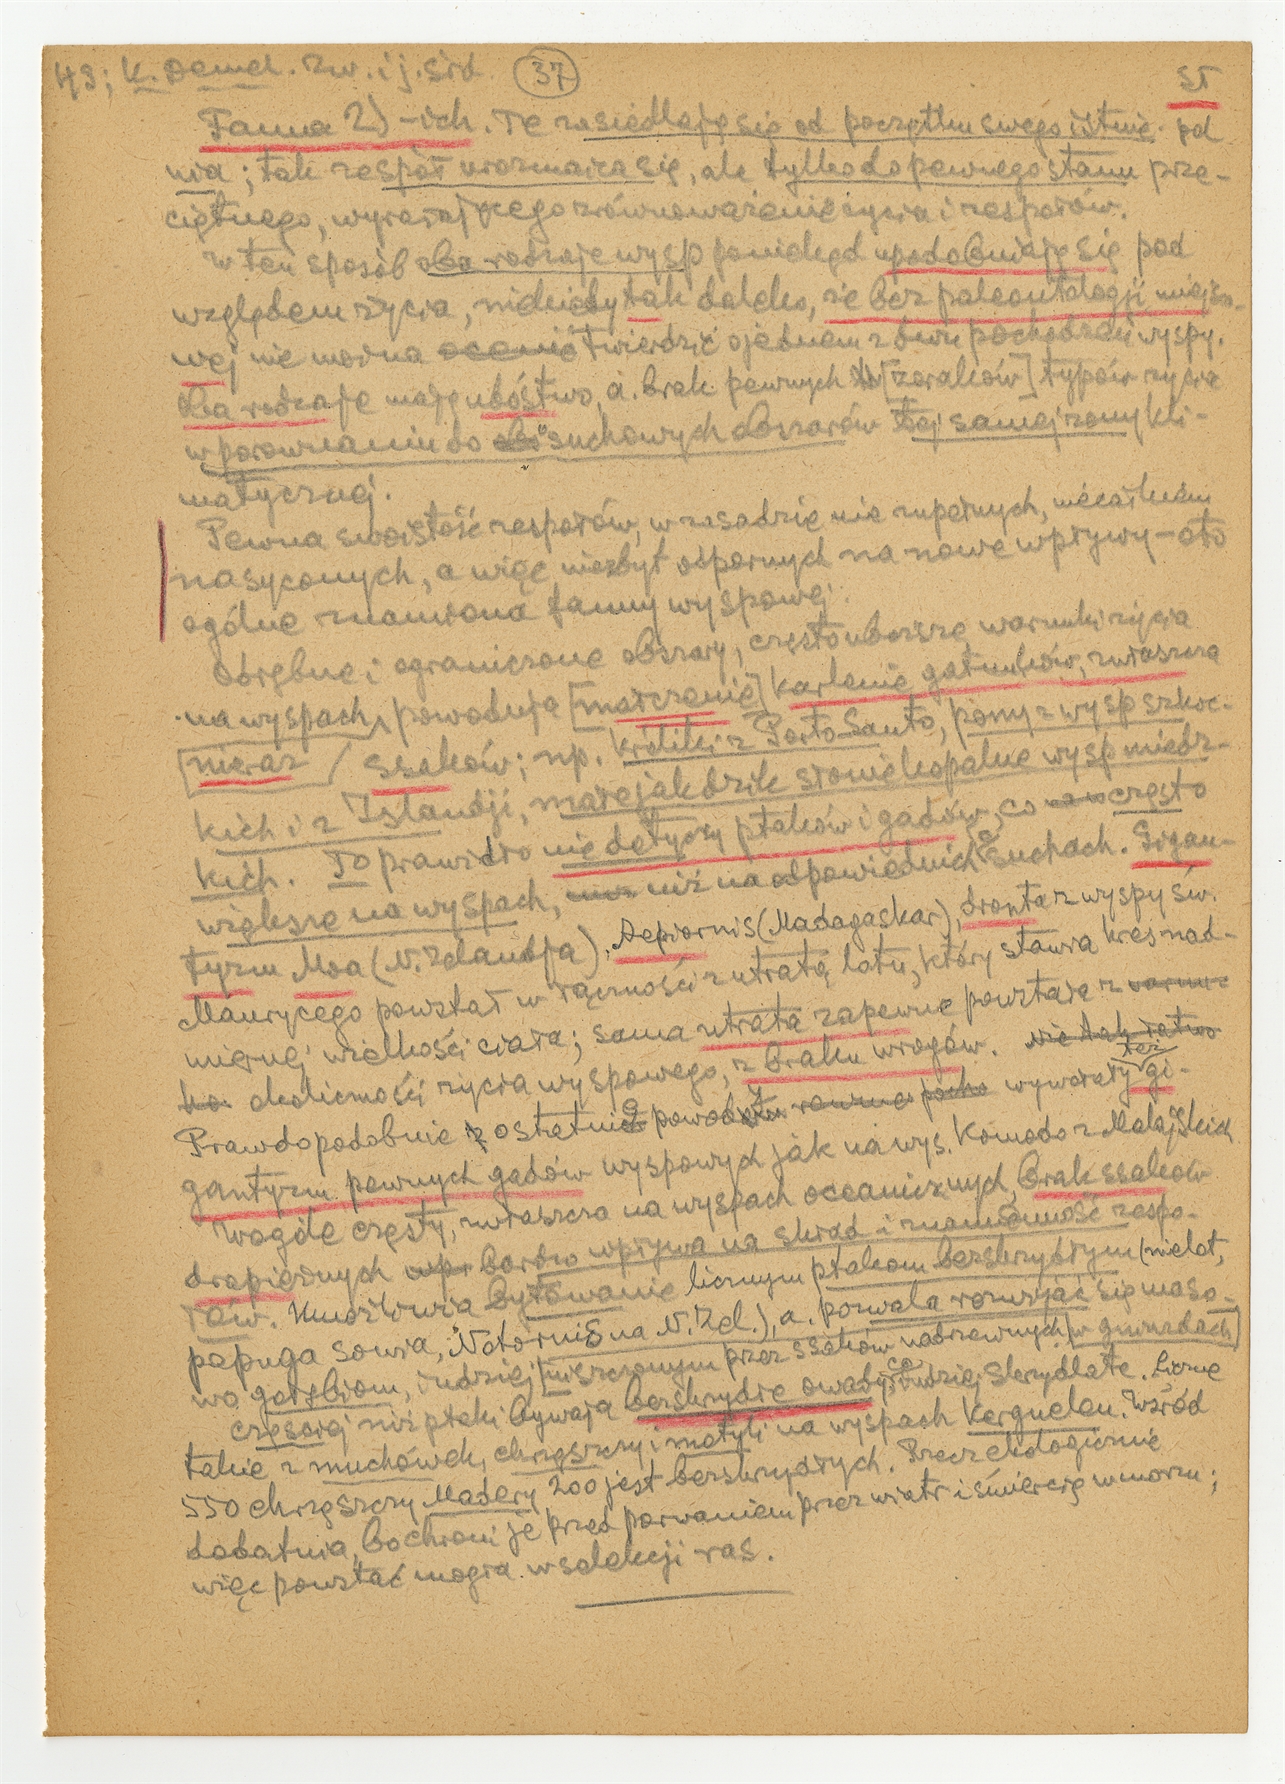 43; K. Demel. Zw. i j. śrd. 37 51
Fauna 2) -ich. Te zasiedlają się od początku swego istnie- od
nia; tak zespół urozmaica się, ale tylko do pewnego stanu prze-
ciętnego, wyrażającego zrównoważenie życia i zespołów.
W ten sposób oba rodzaje wysp poniekąd upodobniają się pod
względem życia, niekiedy tak daleko, że bez paleontologji miejsco-
wej nie można ocenić twierdzić o jednem z dwu pochodzeń wyspy.
Oba rodzaje mają ubóstwo, a. brak pewnych [zoraków] typów życia
w porównaniu do obs suchowych obszarów tej samej zony kli-
matycznej.
Pewna swoistość zespołów, w zasadzie nie zupełnych, niecałkiem
nasyconych, a więc niezbyt odpornych na nowe wpływy – oto
ogólne znamiona fauny wyspowej.
Odrębne i ograniczone obszary, często uboższe warunki życia
na wyspach, powodują [małczenie] karlenie gatunków, zwłaszcza
[nieraz / ssaków; np. króliki z Porto Santo, pony z wysp szkoc-
kich i z Islandji, małe jak dzik słonie kopalne wysp śródz-
kich. To prawidło nie dotyczy ptaków i gadów, co często
większe na wyspach, niż na odpowiednich suchach. Gigan-
tyzm Moa (N. Zelandja), Aepiornis (Madagaskar), dronta z wyspy św.
Maurycego powstał w łączności z utratą lotu, który stawia kres nad-
miernej wielkości ciała; sama utrata zapewne powstaje z warun-
ko okoliczności życia wyspowego, z braku wrogów. nie tak łatwo
Prawdopodobnie z ostatnie powody wywołały też gi-
gantyzm pewnych gadów wyspowych jak na wys. Komodo z Malajskich
Wogóle częsty, zwłaszcza na wyspach oceanicznych, brak ssaków
drapieżnych bardzo wpływa na skład i znamienność zespo-
łów. Umożliwia bytowanie licznym ptakom bezskrzydłym (nielot,
papuga sowia, Notornis na N. Zel.), a. pozwala rozwijać się maso-
wo gołębiom, indziej niszczonym przez ssaków nadrzewnych [w gniazdach]
częściej niż ptaki bywają bezskrzydłe owady, co indziej skrzydlate. Liczne
takie z muchówek, chrząszczy i motyli na wyspach Kerguelen. Wśród
550 chrząszczy Madery 200 jest bezskrzydłych. Rzecz ekologicznie
dodatnia, bo chroni je przed porwaniem przez wiatr i śmiercią w morzu;
więc powstać mogła w selekcji ras.